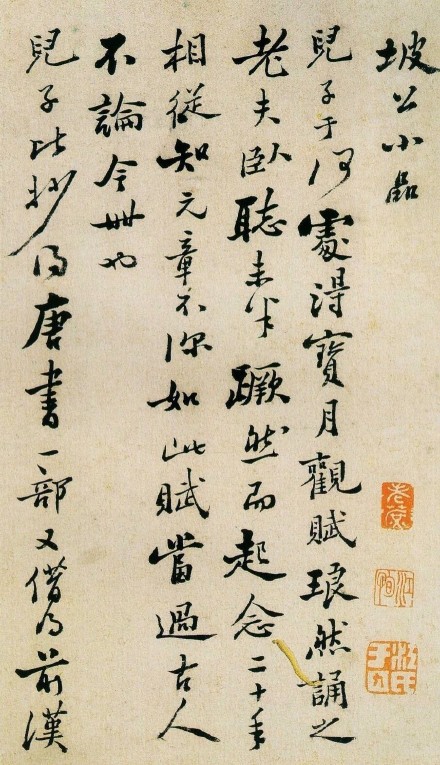 坡公小品
兒子于何處得寶月觀賦琅然誦之
老夫臥聽未半蹶然而起念二十年
相從知元章不深如此賦當過古人
不論今世也
兒子比抄得唐書一部又借得前漢
江恂